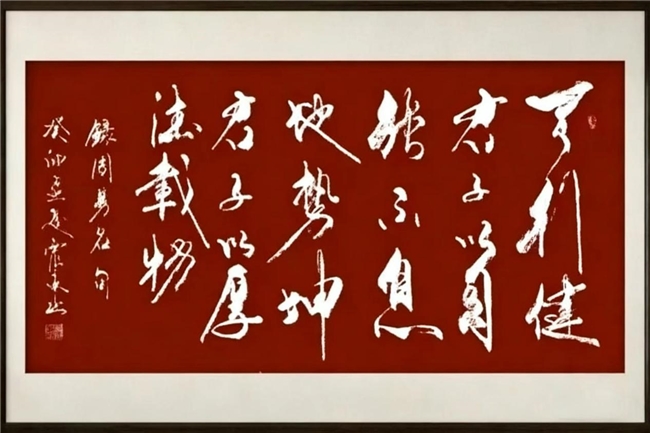 天行健
君子以自
強不息
地勢坤
君子以厚
德載物
錄周易名句
癸卯孟夏 书